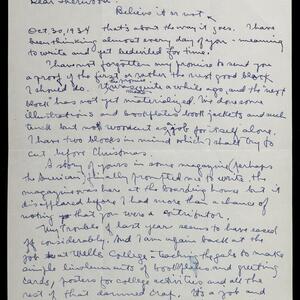 Dear Sherwood:
Believe it or not
Oct 30, 1934 that's about the way it goes. I have
been thinking almost every day of you – meaning
to write and yet bedeviled for time.
I have not forgotten my promise to send you
a proof of the first or rather the next good block
I should do. That was quite a while ago, and the next
block has not yet materialized. I've done some
illustrations and bookplates book jackets and such
truck but no woodcut as a job for itself alone.
I have two blocks in mind which I shall try to
cut before Christmas.
A story of yours in some magazine (perhaps
the American) finally prompted me to write. The
magazine was here at the boarding house but it
disappeared before I had more than a chance of
noting that you were a contributor.
My troubles of last year seems to have eased
off considerably. And I am again back at the
job at Wells College – teaching the gals to make
simple linoleum cuts of bookplates and greeting
cards, posters for college activities and all the
rest of that damned crap. It's a job and